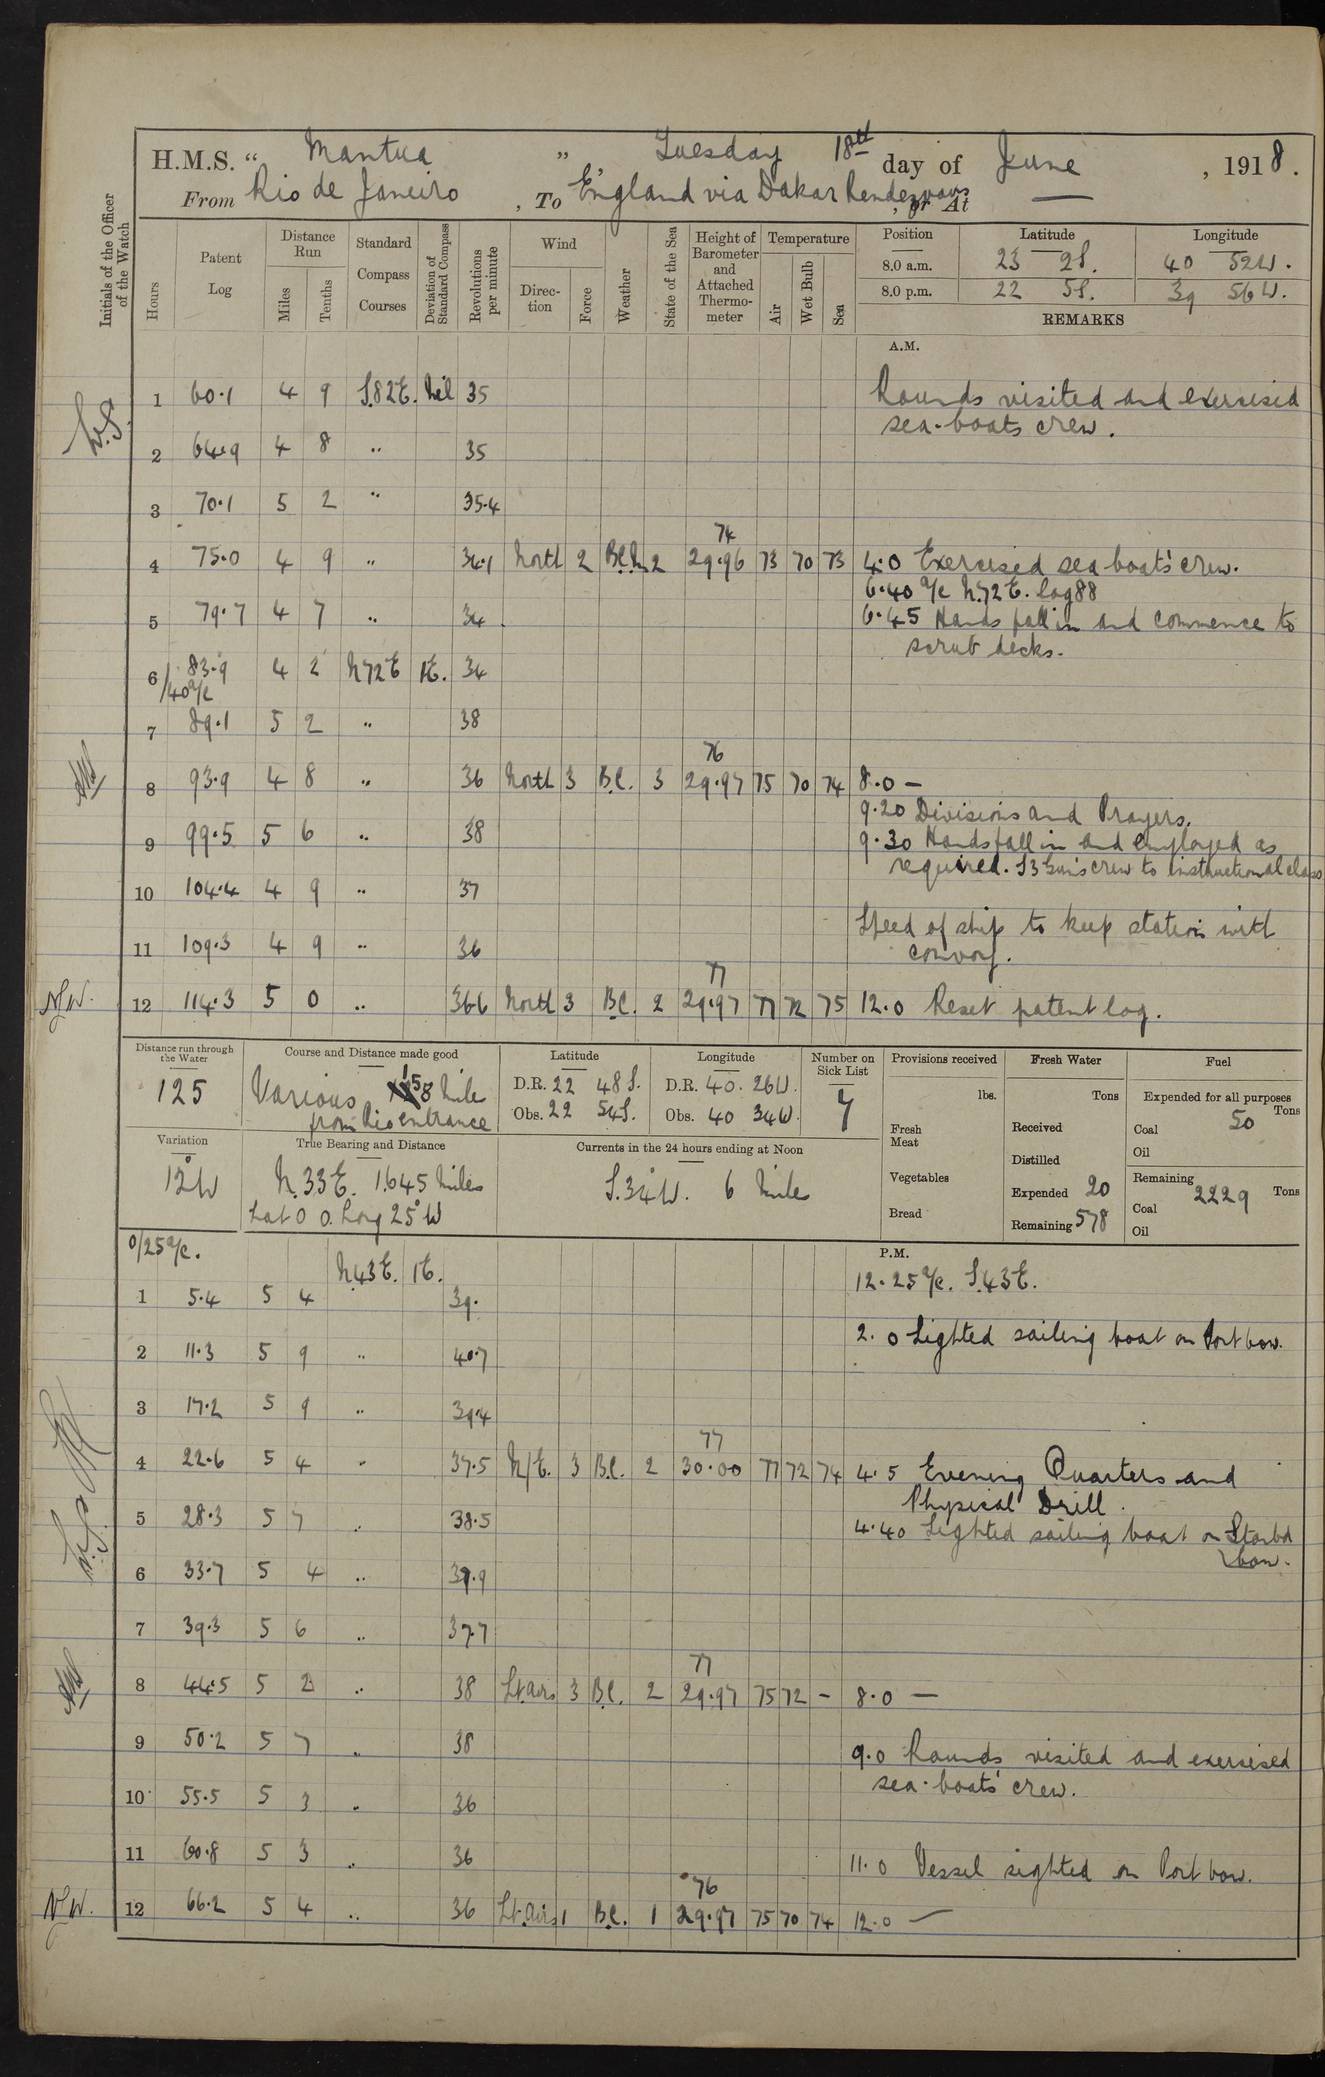 H.M.S. “ Mantua ” Tuesday 18th day of June , 1918.
From Rio de Janeiro , To England via Dakar Rendezvous , or At —
Initials of the Officer of the Watch
Hours
Patent Log
Distance Run
Miles
Tenths
Standard Compass Courses
Deviation of Standard Compass
Revolutions per minute
Wind
Direction
Force
Weather
State of the Sea
Height of Barometer and Attached Thermometer
Temperature
Air
Wet Bulb
Sea
Position Latitude Longitude
8.0 a.m. 23 2S. 40 52W.
8.0 p.m. 22 5S. 39 56W.
REMARKS
A.M.
1 60.1 4 9 S.82E. Nil 35 Rounds visited and exersised
sea-boats crew.
2 64.9 4 8 " 35
3 70.1 5 2 " 35.4
74
4 75.0 4 9 " 34.1 North 2 B.C.M. 2 29.96 73 70 73 4.0 Exersised sea boat's crew.
6.40 a/c N.72E. Log 88
5 79.7 4 7 " 34 6.45 Hands fall in and commence to
scrub decks.
6 83.9 4 2 N72E 1E. 34
/40 a/c
7 89.1 5 2 " 38
76
8 93.9 4 8 " 36 North 3 B.C. 3 29.97 75 70 74 8.0 —
9.20 Divisions and Prayers.
9 99.5 5 6 " 38 9.30 Hands fall in and employed as
required. S3 Gun's crew to instructional class
10 104.4 4 9 " 37
Speed of ship to keep station with
11 109.3 4 9 " 36 convoy.
77
N.W. 12 114.3 5 0 " 36.6 North 3 B.C. 2 29.97 77 72 75 12.0 Reset patent log.
Distance run through the Water
125
Course and Distance made good
Various 158 Mile
from Rio entrance
Latitude
D.R. 22 48S.
Obs. 22 54S.
Longitude
D.R. 40. 26W.
Obs. 40 34W.
Number on Sick List
7
Provisions received
lbs.
Fresh Meat
Vegetables
Bread
Fresh Water
Tons
Received
Distilled
Expended 20
Remaining 578
Fuel
Expended for all purposes
Tons
Coal 50
Oil
Remaining
Coal 2229 Tons
Oil
Variation
12°W
True Bearing and Distance
N.33E. 1645 Miles
Lat 0 0. Long 25° W
Currents in the 24 hours ending at Noon
S.34°W. 6 Miles
P.M.
0/25 a/c. N.43E. 1E. 12.25 a/c. S.43E.
1 5.4 5 4 39.
2.0 Sighted sailing boat on Port bow.
2 11.3 5 9 " 40.7
3 17.2 5 9 " 39.4
77
4 22.6 5 4 " 37.5 N/E. 3 B.C. 2 30.00 77 72 74 4.5 Evening Quarters and
Physical Drill.
5 28.3 5 7 " 38.5 4.40 Sighted sailing boat on Starbd
bow.
6 33.7 5 4 " 37.9
7 39.3 5 6 " 37.7
77
8 44.5 5 2 " 38 Lt.airs 3 B.C. 2 29.97 75 72 – 8.0 —
9 50.2 5 7 " 38 9.0 Rounds visited and exersised
sea-boats' crew.
10 55.5 5 3 " 36
11 60.8 5 3 " 36 11.0 Vessel sighted on Port bow.
76
N.W. 12 66.2 5 4 " 36 Lt.airs 1 B.C. 1 29.97 75 70 74 12.0 —